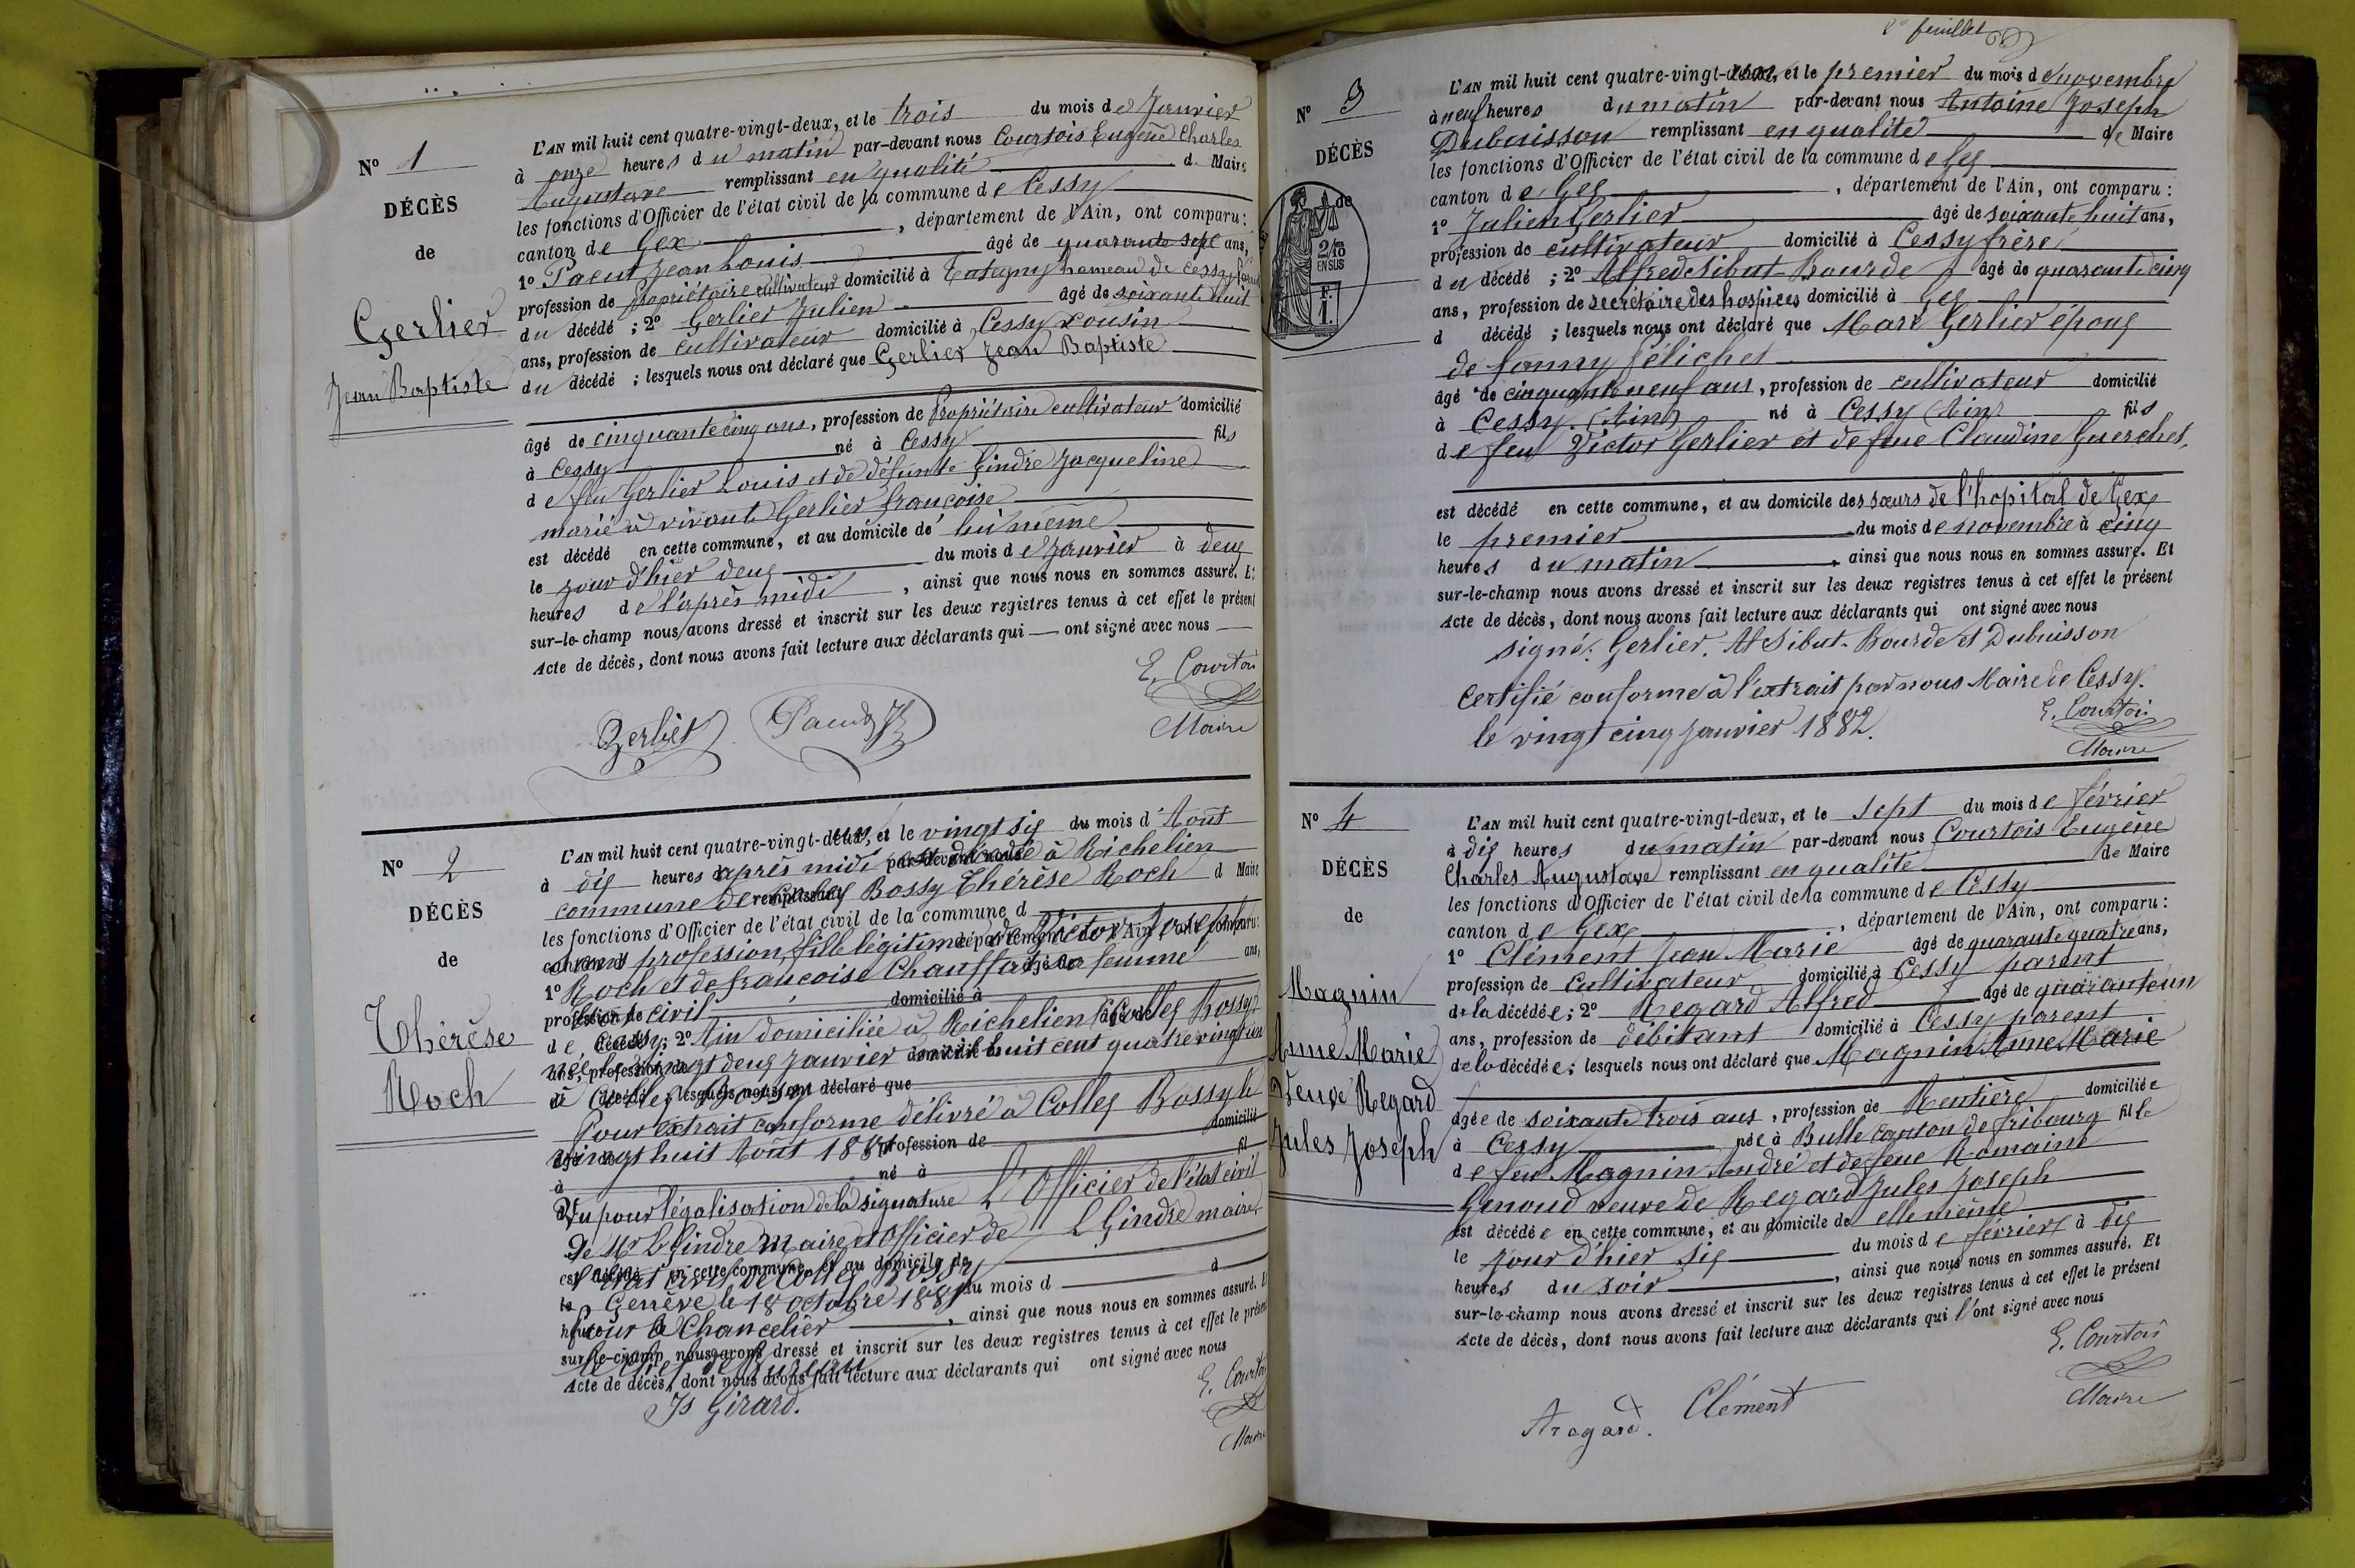 N° 1
DÉCÈS
de
Gerlier
Jean Baptiste
L'AN mil huit cent quatre-vingt-deux, et le trois du mois de Janvier
à onze heures du matin par-devant nous Courtois Eugène Charles
Augustave remplissant en qualité de Maire
les fonctions d'Officier de l'état civil de la commune de Cessy
canton de Gex, département de l'Ain, ont comparu :
1° Jean Louis âgé de quarante sept ans,
profession de Propriétaire cultivateur domicilié à Tutegny hameau de Cessy
du décédé ; 2° Gerlier Julien âgé de soixante huit
ans, profession de cultivateur domicilié à Cessy cousin
du décédé ; lesquels nous ont déclaré que Gerlier Jean Baptiste
âgé de cinquante cinq ans, profession de Propriétaire cultivateur domicilié
à Cessy né à Cessy fils
de feu Gerlier Louis et de défunte Gindre Jacqueline
marié à vivante Gerlier françoise
est décédé en cette commune, et au domicile de lui même
le jour d'hier deux du mois de Janvier à deux
heures de l'après midi, ainsi que nous nous en sommes assuré. Et
sur-le-champ nous avons dressé et inscrit sur les deux registres tenus à cet effet le présent
Acte de décès, dont nous avons fait lecture aux déclarants qui ont signé avec nous
E. Courtois
Gerlier
Maire
N° 2
DÉCÈS
de
Thérèse
Roch
L'AN mil huit cent quatre-vingt-un, et le vingt six du mois d'Août
à dix heures après midi est décédée à Richelien
commune de Collex Bossy Thérèse Roch d Maire
les fonctions d'Officier de l'état civil de la commune d
sans profession, fille légitime de Victor Joseph
1° Roch et de françoise Chauffat sa femme ans,
profession de civil domicilié à
de Cessy, 2° Ain domiciliée à Richelien Collex Bossy
née le vingt deux janvier mil huit cent quatre vingt un
à Collex Bossy
Pour extrait conforme délivré à Collex Bossy le
vingt huit Août 1881 profession de domicilié
à né à fil
Vu pour légalisation de la signature L'Officier de l'état civil
de Mr L Gindre Maire et Officier de L Gindre maire
l'état civil de Collex Bossy
Genève le 18 octobre 1881 du mois d à
Pour le Chancelier, ainsi que nous nous en sommes assuré. Et
sur-le-champ nous avons dressé et inscrit sur les deux registres tenus à cet effet le présent
le chef de Bureau
Acte de décès, dont nous avons fait lecture aux déclarants qui ont signé avec nous
Js Girard.
E. Courtois
Maire
2e feuillet
N° 3
DÉCÈS
de
2/10
EN SUS
F.
1.
L'AN mil huit cent quatre-vingt-un, et le premier du mois de novembre
à neuf heures du matin par-devant nous Antoine Joseph
Dubuisson remplissant en qualité de Maire
les fonctions d'Officier de l'état civil de la commune de Gex
canton de Gex, département de l'Ain, ont comparu :
1° Julien Gerlier âgé de soixante huit ans,
profession de cultivateur domicilié à Cessy frère
du décédé ; 2° Alfred Sibut Bourde âgé de quarante cinq
ans, profession de secrétaire des hospices domicilié à Gex
d décédé ; lesquels nous ont déclaré que Marc Gerlier époux
de fanny féliches
âgé de cinquante neuf ans, profession de cultivateur domicilié
à Cessy (Ain) né à Cessy (Ain) fils
de feu Victor Gerlier et de feue Claudine Guerchet,
est décédé en cette commune, et au domicile des sœurs de l'hopital de Gex
le premier du mois de novembre à cinq
heures du matin, ainsi que nous nous en sommes assuré. Et
sur-le-champ nous avons dressé et inscrit sur les deux registres tenus à cet effet le présent
Acte de décès, dont nous avons fait lecture aux déclarants qui ont signé avec nous
signé: Gerlier. Al Sibut-Bourde et Dubuisson
Certifié conforme à l'extrait par nous Maire de Cessy.
le vingt cinq janvier 1882.
E. Courtois
Maire
N° 4
DÉCÈS
de
Magnin
Anne Marie
Veuve Regard
Jules Joseph
L'AN mil huit cent quatre-vingt-deux, et le sept du mois de février
à dix heures du matin par-devant nous Courtois Eugène
Charles Augustave remplissant en qualité de Maire
les fonctions d'Officier de l'état civil de la commune de Cessy
canton de Gex, département de l'Ain, ont comparu :
1° Clément Jean Marie âgé de quarante quatre ans,
profession de Cultivateur domicilié à Cessy parent
de la décédée ; 2° Regard Alfred âgé de quarante un
ans, profession de débitant domicilié à Cessy parent
de la décédée ; lesquels nous ont déclaré que Magnin Anne Marie
âgée de soixante trois ans, profession de Rentière domiciliée
à Cessy née à Bulle canton de fribourg fille
de feu Magnin André et de feue Romaine
Genoud veuve de Regard Jules Joseph
est décédée en cette commune, et au domicile de elle même
le jour d'hier six du mois de février à dix
heures du soir, ainsi que nous nous en sommes assuré. Et
sur-le-champ nous avons dressé et inscrit sur les deux registres tenus à cet effet le présent
Acte de décès, dont nous avons fait lecture aux déclarants qui l'ont signé avec nous
E. Courtois
Clément
Maire
A regard.